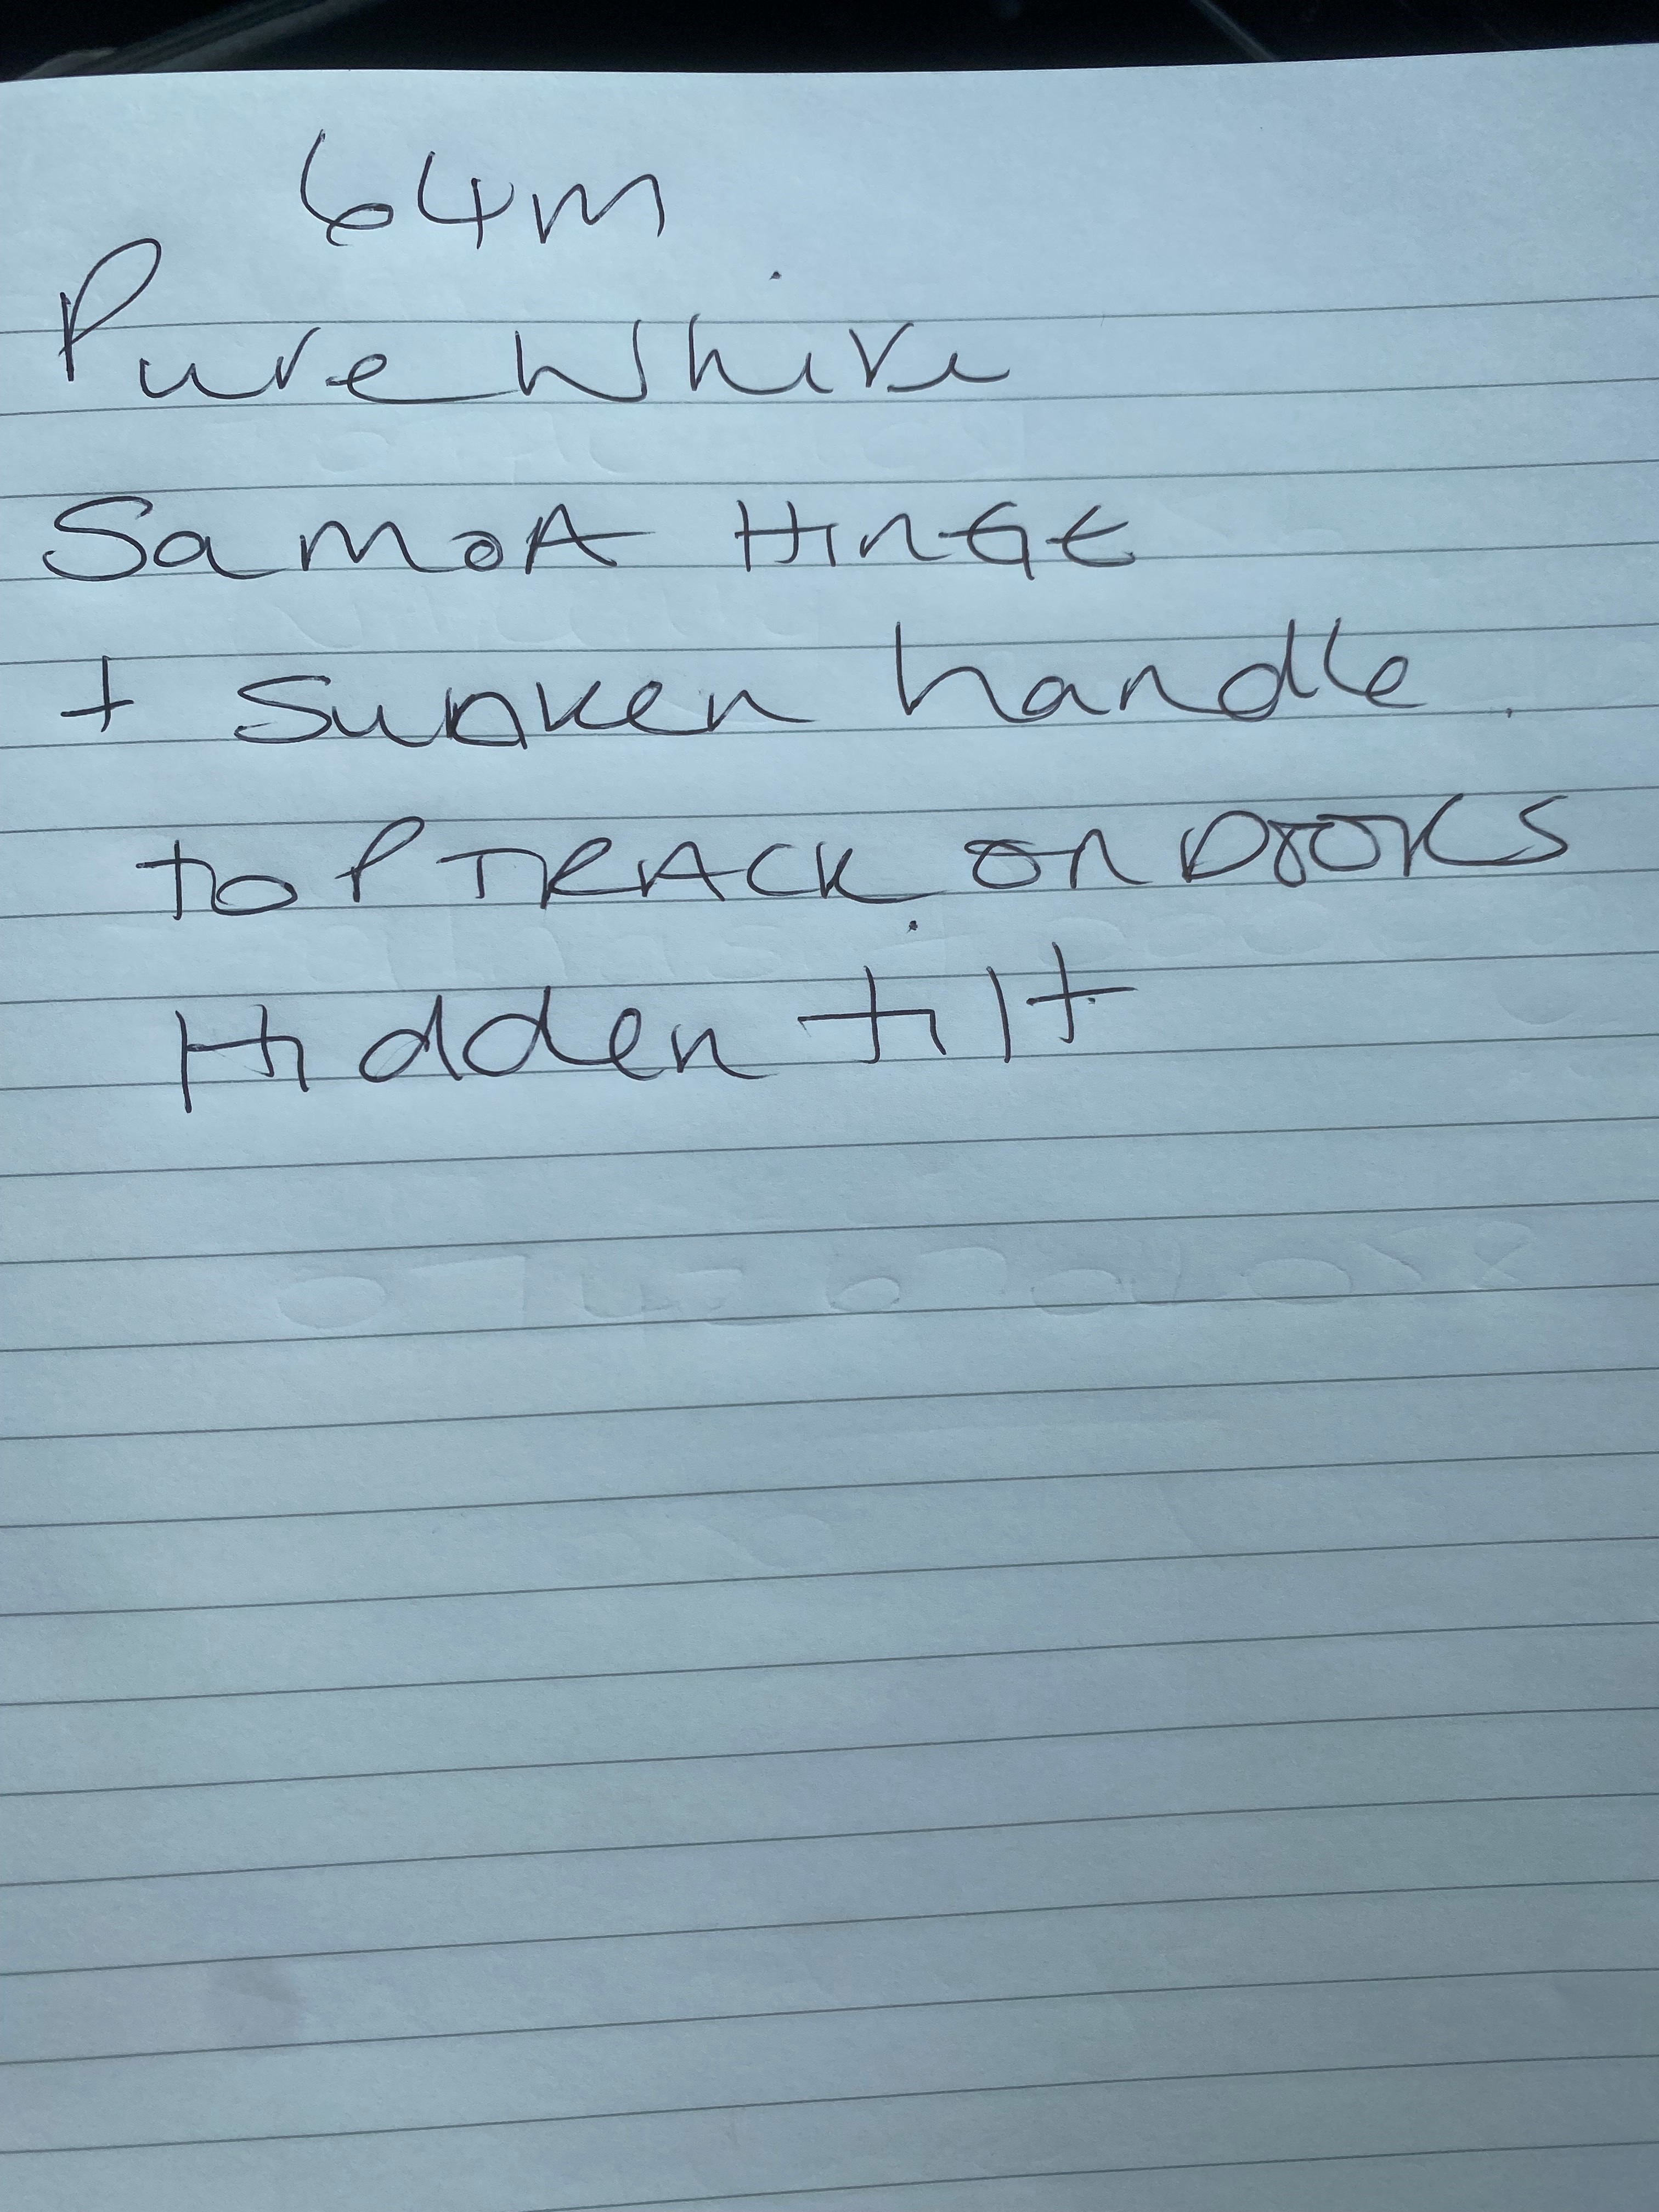 64m
Pure White
Samoa Hinge
+ sunken handle.
top TRACK on Doors
Hidden tilt